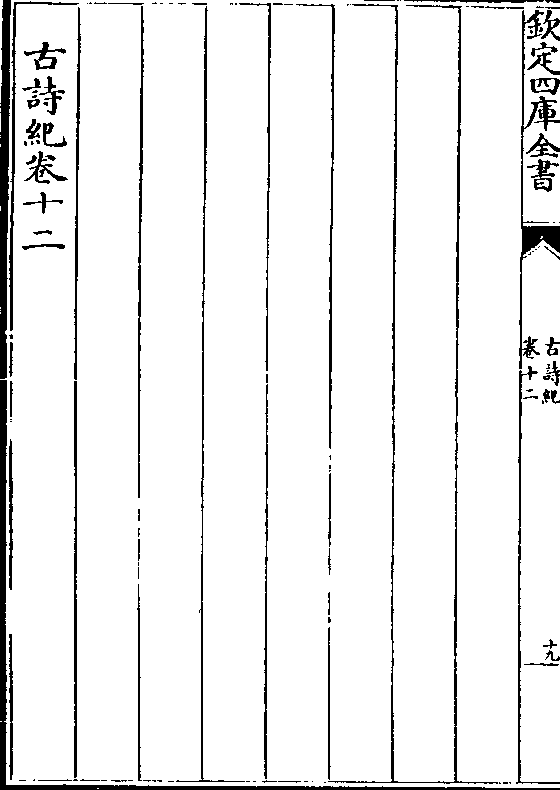 欽定四庫全書
古詩紀
卷十二
十九
古詩紀卷十二